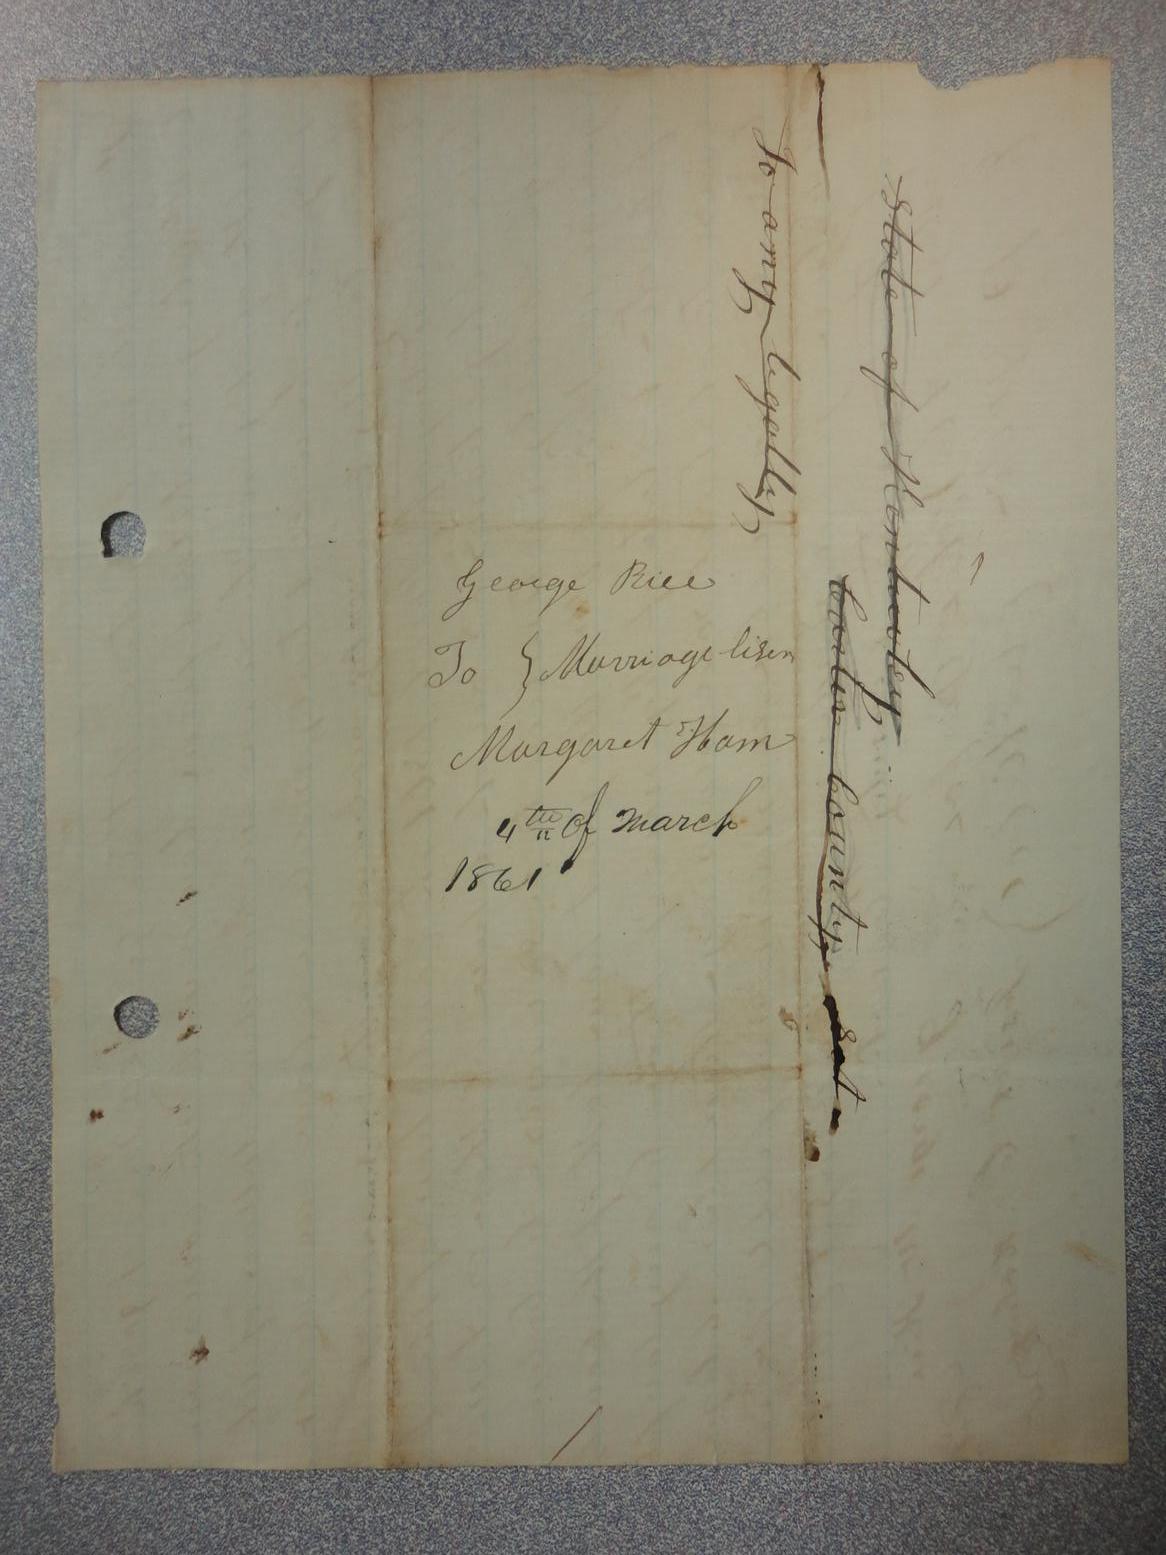 State of Kentucky
Carter County, Sct.
To any legally
George Rice
To } Marriage lisen
Margaret Ham
4th of March
1861